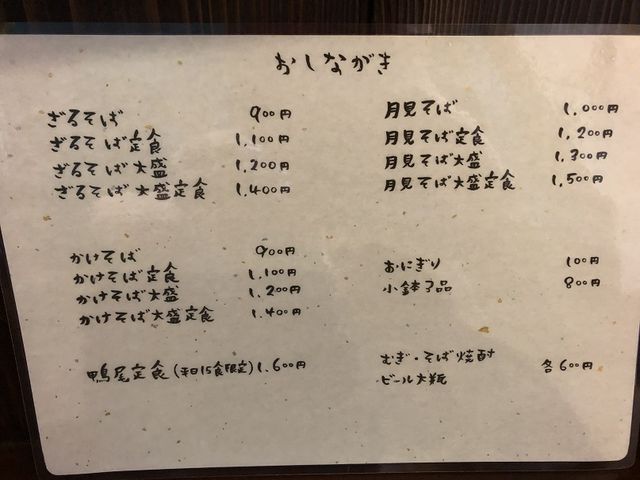 おしながき
ざるそば 900円
ざるそば定食 1,100円
ざるそば大盛 1,200円
ざるそば大盛定食 1,400円
かけそば 900円
かけそば定食 1,100円
かけそば大盛 1,200円
かけそば大盛定食 1,400円
鴨尾定食(平日15食限定) 1,600円
月見そば 1,000円
月見そば定食 1,200円
月見そば大盛 1,300円
月見そば大盛定食 1,500円
おにぎり 100円
小鉢3品 800円
むぎ・そば焼酎 各600円
ビール大瓶